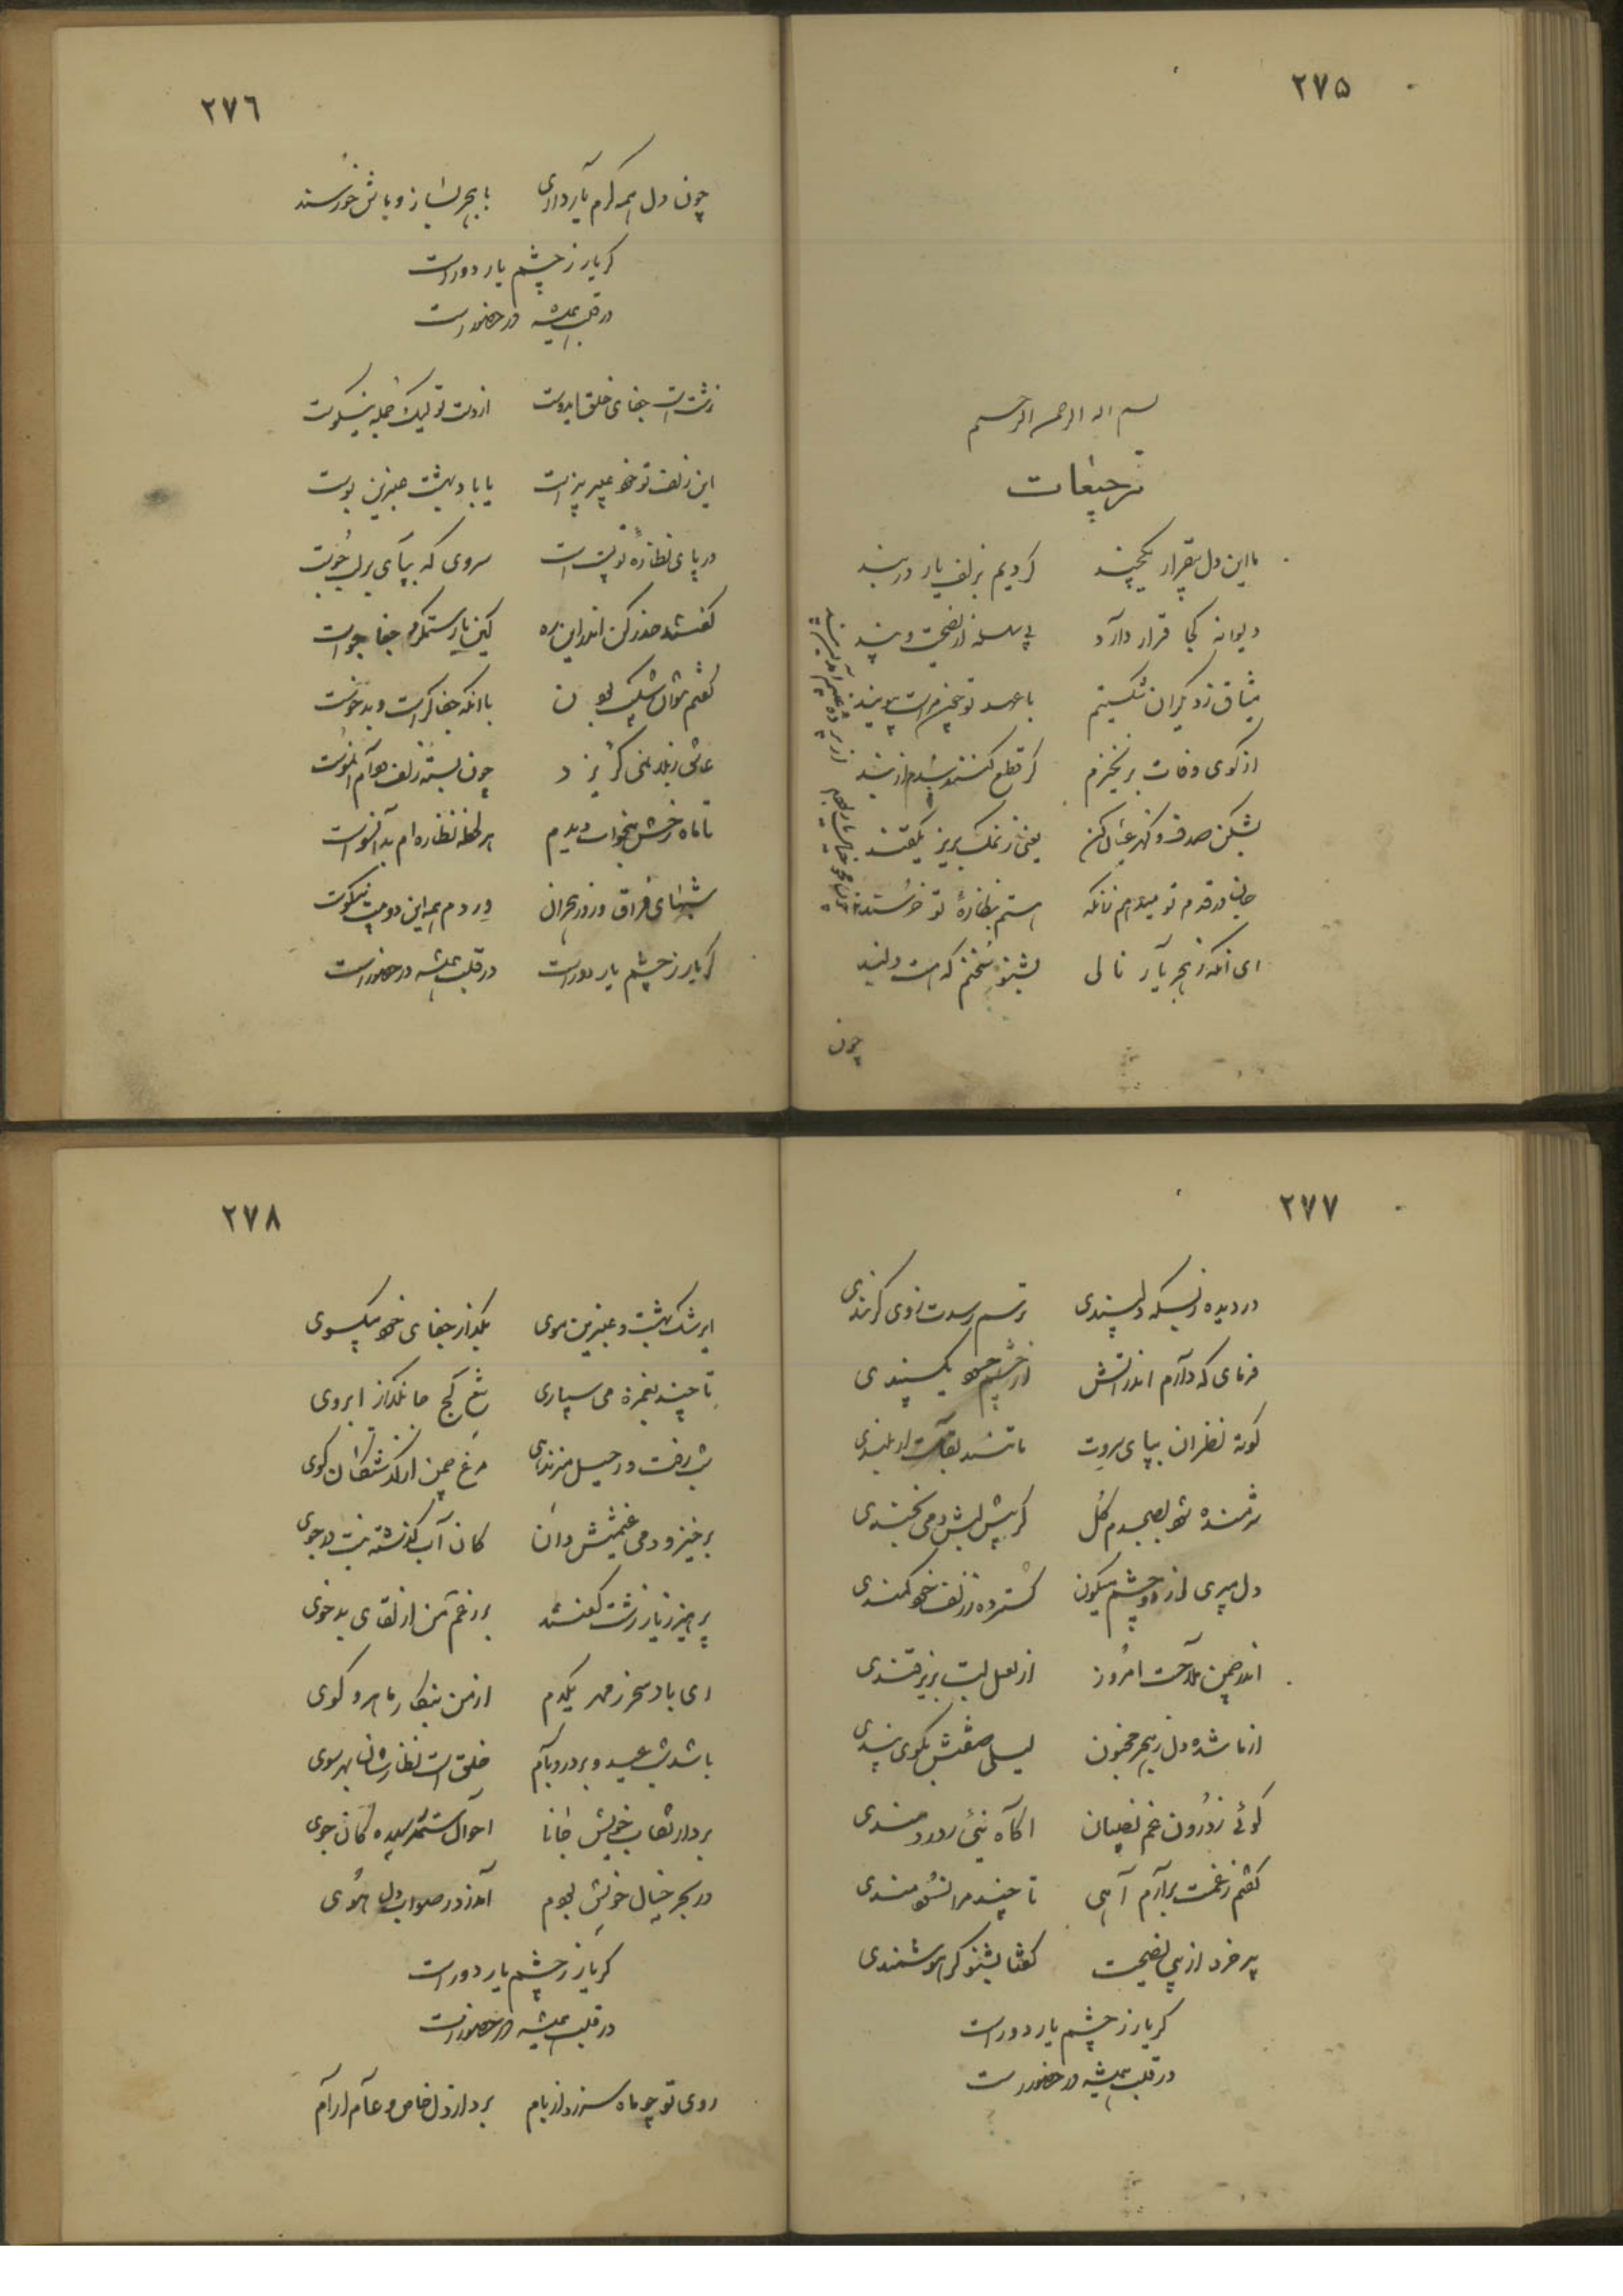 ٢٧٥
بسم اله الرحمن الرحیم
ترجیعات
با این دل بیقرار یکچند کردیم بزلف یار در بند
دیوانه کجا قرار دارد بی سلسله از نصیحت و پند
میثاق ز دیگران شکستیم با عهد تو
از کوی وفات برنخیزم گر قطع کنند بندم از بند
بشکن صدف و گهر عیان کن یعنی ز نمک بریز یکقند
جان در قدم تو میدهم زانکه هستم بنظارهٔ تو خرسند
ای آنکه ز هجر یار نالی بشنو سخنم که هست دلبند
چون
٢٧٦
چون دل همه گرم یار داری با هجر بساز و باش خورسند
گر یار ز چشم یار دور است
در قلب همیشه در حضور است
زشت است جفای خلق ایدوست از دست تو لیک جمله نیکوست
این زلف تو خود عبیر بیز است یا باد بهشت عنبرین بوست
در پای نظارهٔ تو پست است سروی که بپای بر لب جوست
گفتند حذر کن اندر این ره کین یار ستمگر جفا جوست
گفتم نتوان شکیب بودن با آنکه جفاگر است و بدخوست
عاشق ز بلا نمی گریزد چون بسته زلف
تا ماه رخش بخواب دیدم هر لحظه نظاره ام بدانسوست
شبهای فراق و روز هجران ورد دم همه این دو بیت نیکوست
گر یار ز چشم یار دور است در قلب همیشه در حضور است
٢٧٧
در دیده ز بسکه دلپسندی ترسم رسدت ز وی گزندی
فرمای که دارم اندر آتش از چشم خود سپندی
کوته نظران بپای سروت
شرمنده شود بصبحدم گل گر پیش لبش دمی بخندی
دل میبری از دو چشم میگون گسترده ز زلف خود کمندی
اندر چمن ملاحت امروز از لعل لبت بریز قندی
از ما شده دل ز هجر مجنون لیلی صفتش بگوی پندی
گوئی ز درون غم نصیبان آگاه نئی ز دردمندی
گفتم ز غمت برآرم آهی تا چند مرا
پیر خرد از پی نصیحت گفتا بشنو گر هوشمندی
گر یار ز چشم یار دور است
در قلب همیشه در حضور است
٢٧٨
ای رشک بهشت و عنبرین موی بگذار جفای خود بیکسوی
تا چند بغمزه می سپاری تیغ کج ابروی
شب رفت و رحیل
برخیز و دمی غنیمتش دان کان آب گذشته نیست در جوی
پرهیز ز یار زشت گفتند بر رغم من از لقای بدخوی
ای باد سحر ز مهر یکدم از من بنگار ماهرو گوی
باشد شب عید و بر در و بام خلق است نظارشان بهر سوی
بردار نقاب خویش جانا احوال ستم رسیده گان جوی
در بحر خیال خویش بودم آمد ز در صواب دل هوی
گر یار ز چشم یار دور است
در قلب همیشه در حضور است
روی تو چو ماه سر زد از بام برد از دل خاص و عام آرام